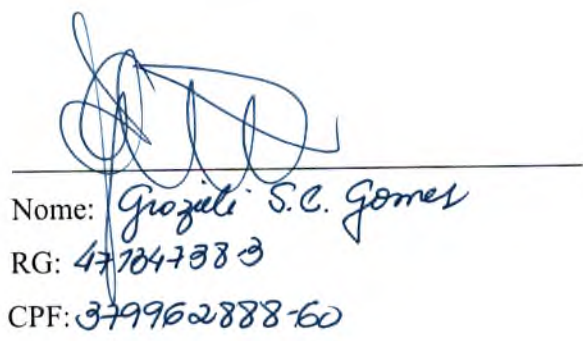 Nome: Grazieli S.C. Gomes
RG: 47184738-3
CPF: 379962888-60